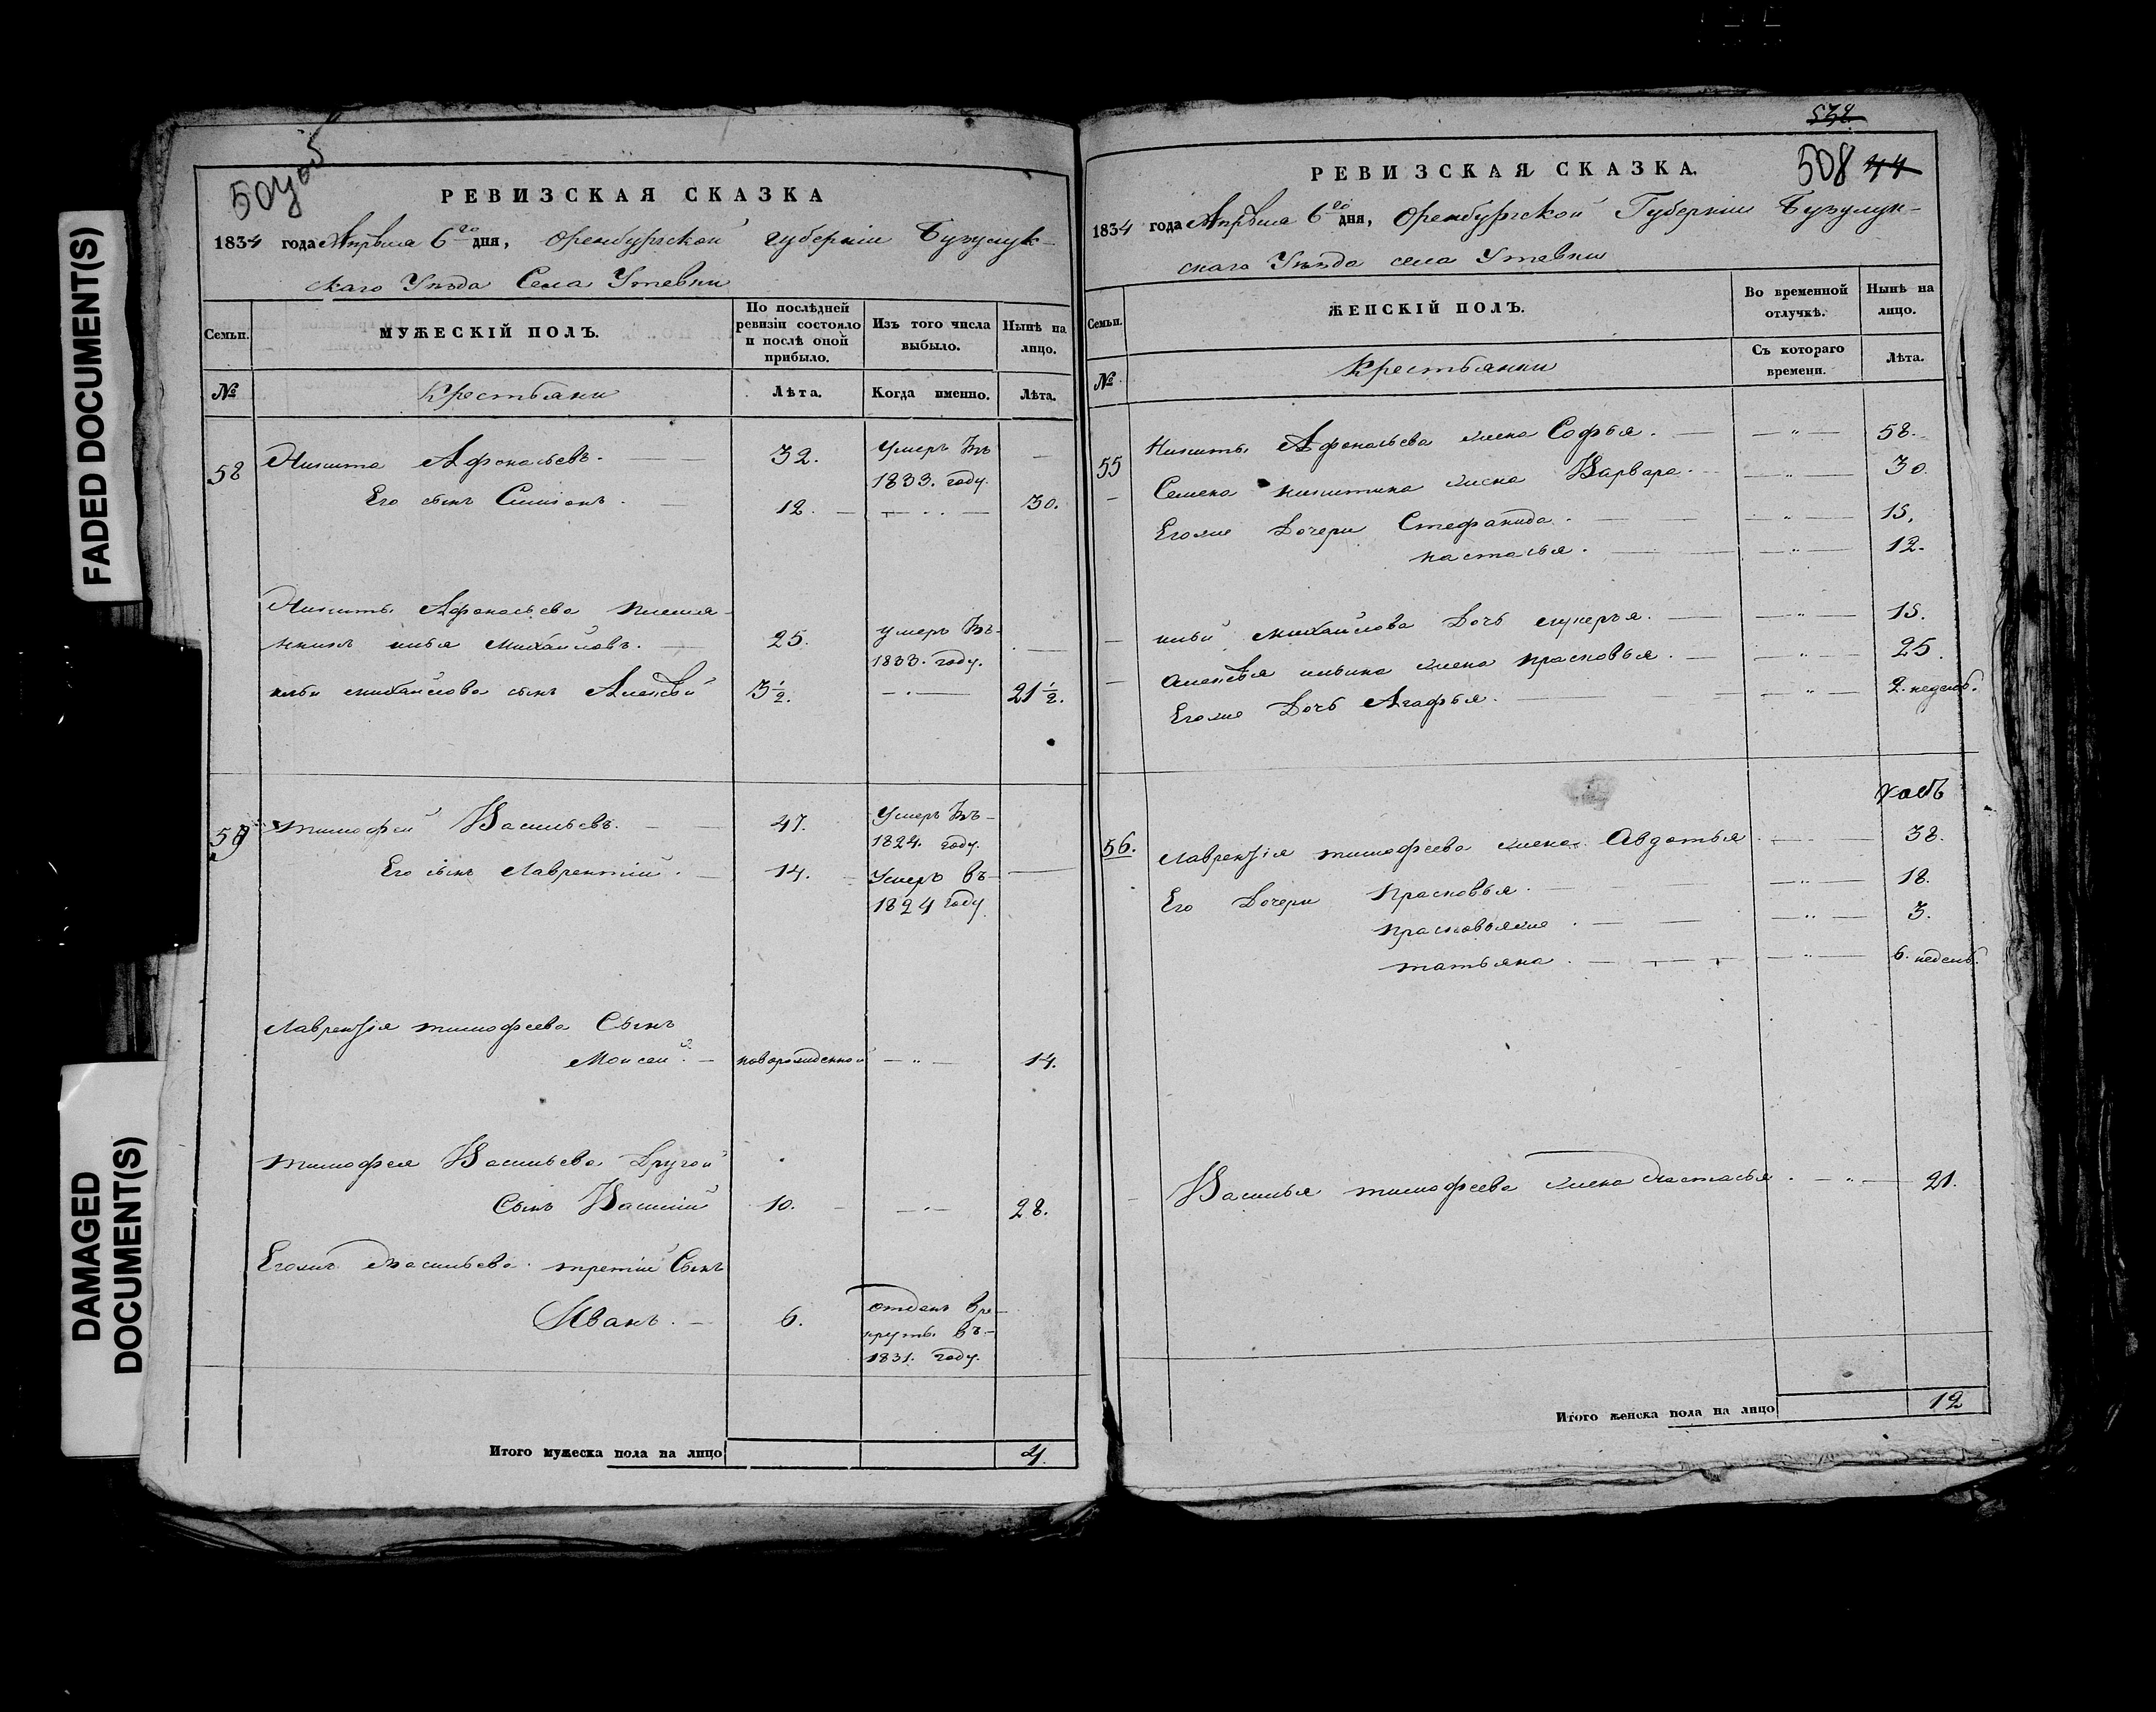 FADED DOCUMENT(S)
DAMAGED
DOCUMENT(S)
507 об
РЕВИЗСКАЯ СКАЗКА
1834 года Апреля 6го дня, Оренбургской губернии Бузулук-
скаго Уезда Села Утевки
Семьи. МУЖЕСКІЙ ПОЛЪ. По послѣдней ревизіи состояло и послѣ оной прибыло. Изъ того числа выбыло. Нынѣ на лицо.
№ Крестьяни Лѣта. Когда именно. Лѣта.
58 Никита Афонасьевъ. 32. Умеръ въ
1833. году.
Его сынъ Симионъ. 12. 30.
Никиты Афонасьева племя-
нникъ илья михайловъ. 25. умеръ въ
1833. году.
ильи михайлова сынъ Алексѣй 3½. 21½.
59 тимофей Васильевъ. 47. Умеръ въ
1824. году.
Его сынъ Лаврентий. 14. Умеръ въ
1824 году
Лаврентія тимофеева Сынъ
Моисей. новорожденной 14.
тимофея Васильева Другой
Сынъ Василий 10. 28.
Егожъ Васильева третий Сынъ
Иванъ. 6. отданъ вре-
круты въ
1831. году.
Итого мужеска пола на лицо 4.
538
508 44
РЕВИЗСКАЯ СКАЗКА.
1834 года Апреля 6го дня, Оренбургской Губерніи Бузулук-
скаго Уезда села Утевки
Семьи. ЖЕНСКІЙ ПОЛЪ. Во временной отлучкѣ. Нынѣ на лицо.
№ Крестьянки Съ котораго времени. Лѣта.
55 Никиты Афонасьева жена Софья. 58.
Семена никитина жена Варвара. 30.
Егоже Дочери Стефанида. 15.
настасья. 12.
ильи михайлова Дочь лукерья. 15.
алексѣя ильина жена прасковья. 25.
Егоже Дочь Агафья. 2. недель.
56. Лаврентія тимофеева жена Авдотья 38.
Его Дочери Прасковья. 18.
прасковьяже 3.
татьяна. 6. недель.
Василья тимофеева жена Настасья. 21.
Итого женска пола на лицо 12